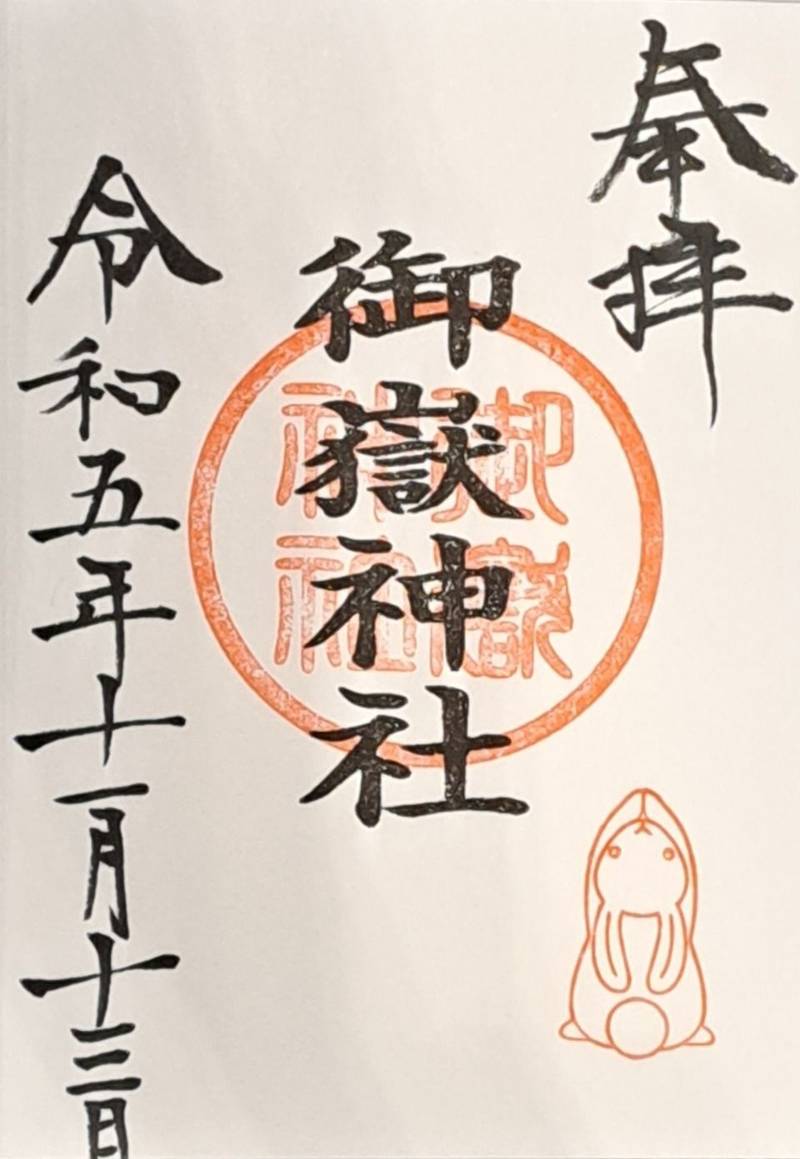 奉拝
御嶽神社
御嶽神社
令和五年十一月十三日